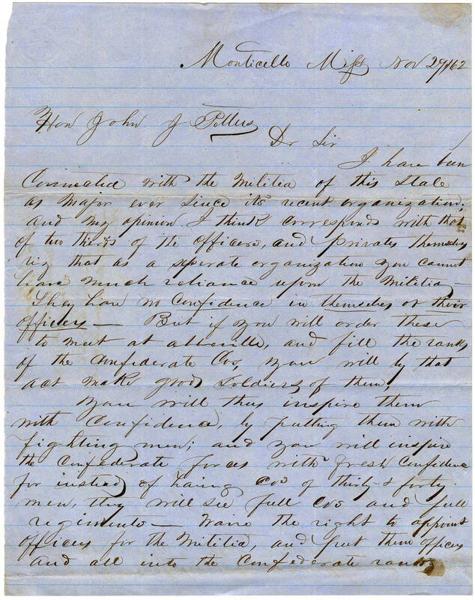 Monticello Miss Nov 29/62
Hon John J Pettus
Dr Sir
I have been
Connected with the Militia of this State
as Major ever since its recent organization,
and my opinion I think corresponds with that
of two thirds of the Officers, and privates themselves
viz that as a seperate organization you cannot
have much reliance upon the Militia
They have no Confidence in themselves or their
officers — But if you will order these
to meet at and fill the ranks
of the Confederate Cos, you will by that
act make good Soldiers of them,
You will thus inspire them
with Confidence, by putting them with
fighting men; and you will inspire
the Confederate forces with fresh Confidence
for instead of being cos of thirty & forty
men, they will see full cos and full
regiments — Wave the right to appoint
officers for the Militia, and put them officers
and all into the Confederate ranks